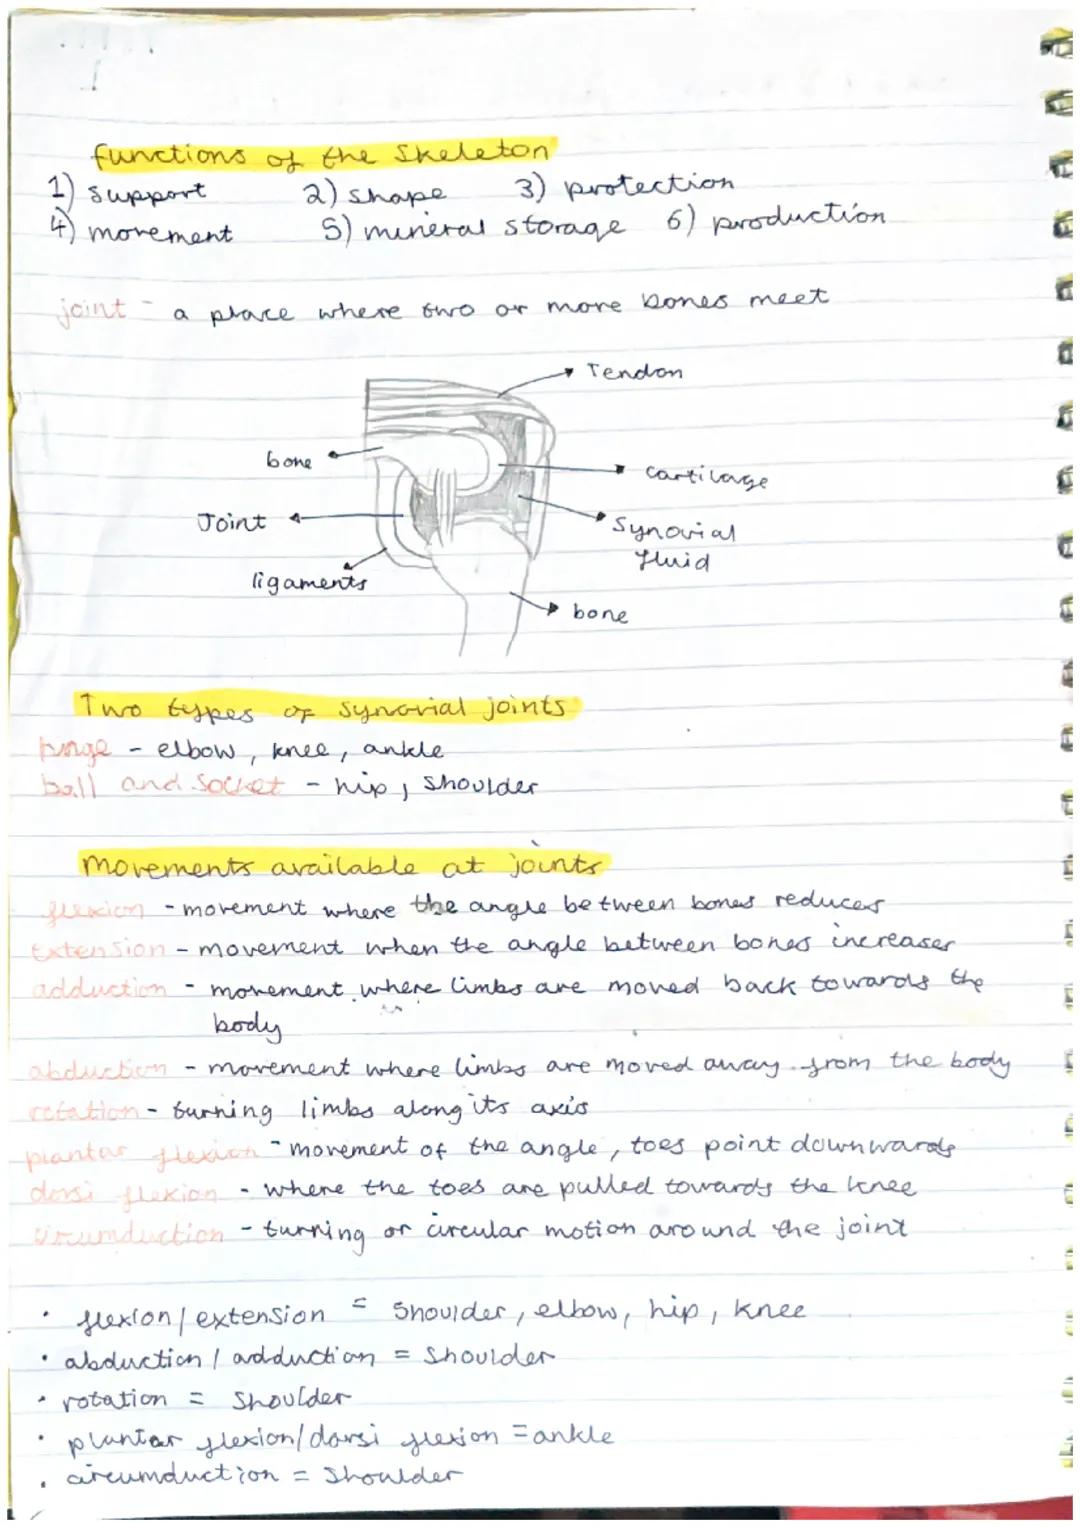 functions of the Skeleton
1) support 2) shape 3) protection
4) movement 5) mineral storage 6) production
joint - a place where two or more bones meet
Tendon
bone
cartilage
Joint
Synovial
fluid
ligaments
bone
Two types of synovial joints
hinge - elbow, knee, ankle
ball and socket - hip, shoulder
movements available at joints
flexion - movement where the angle between bones reduces
extension - movement when the angle between bones increases
adduction - movement where limbs are moved back towards the
body
abduction - movement where limbs are moved away from the body
rotation - turning limbs along its axis
plantar flexion - movement of the angle, toes point downwards
dorsi flexion - where the toes are pulled towards the knee
circumduction - turning or circular motion around the joint
• flexion/extension = shoulder, elbow, hip, knee
• abduction/adduction = shoulder
• rotation = Shoulder
• plantar flexion/dorsi flexion = ankle
• circumduction = shoulder